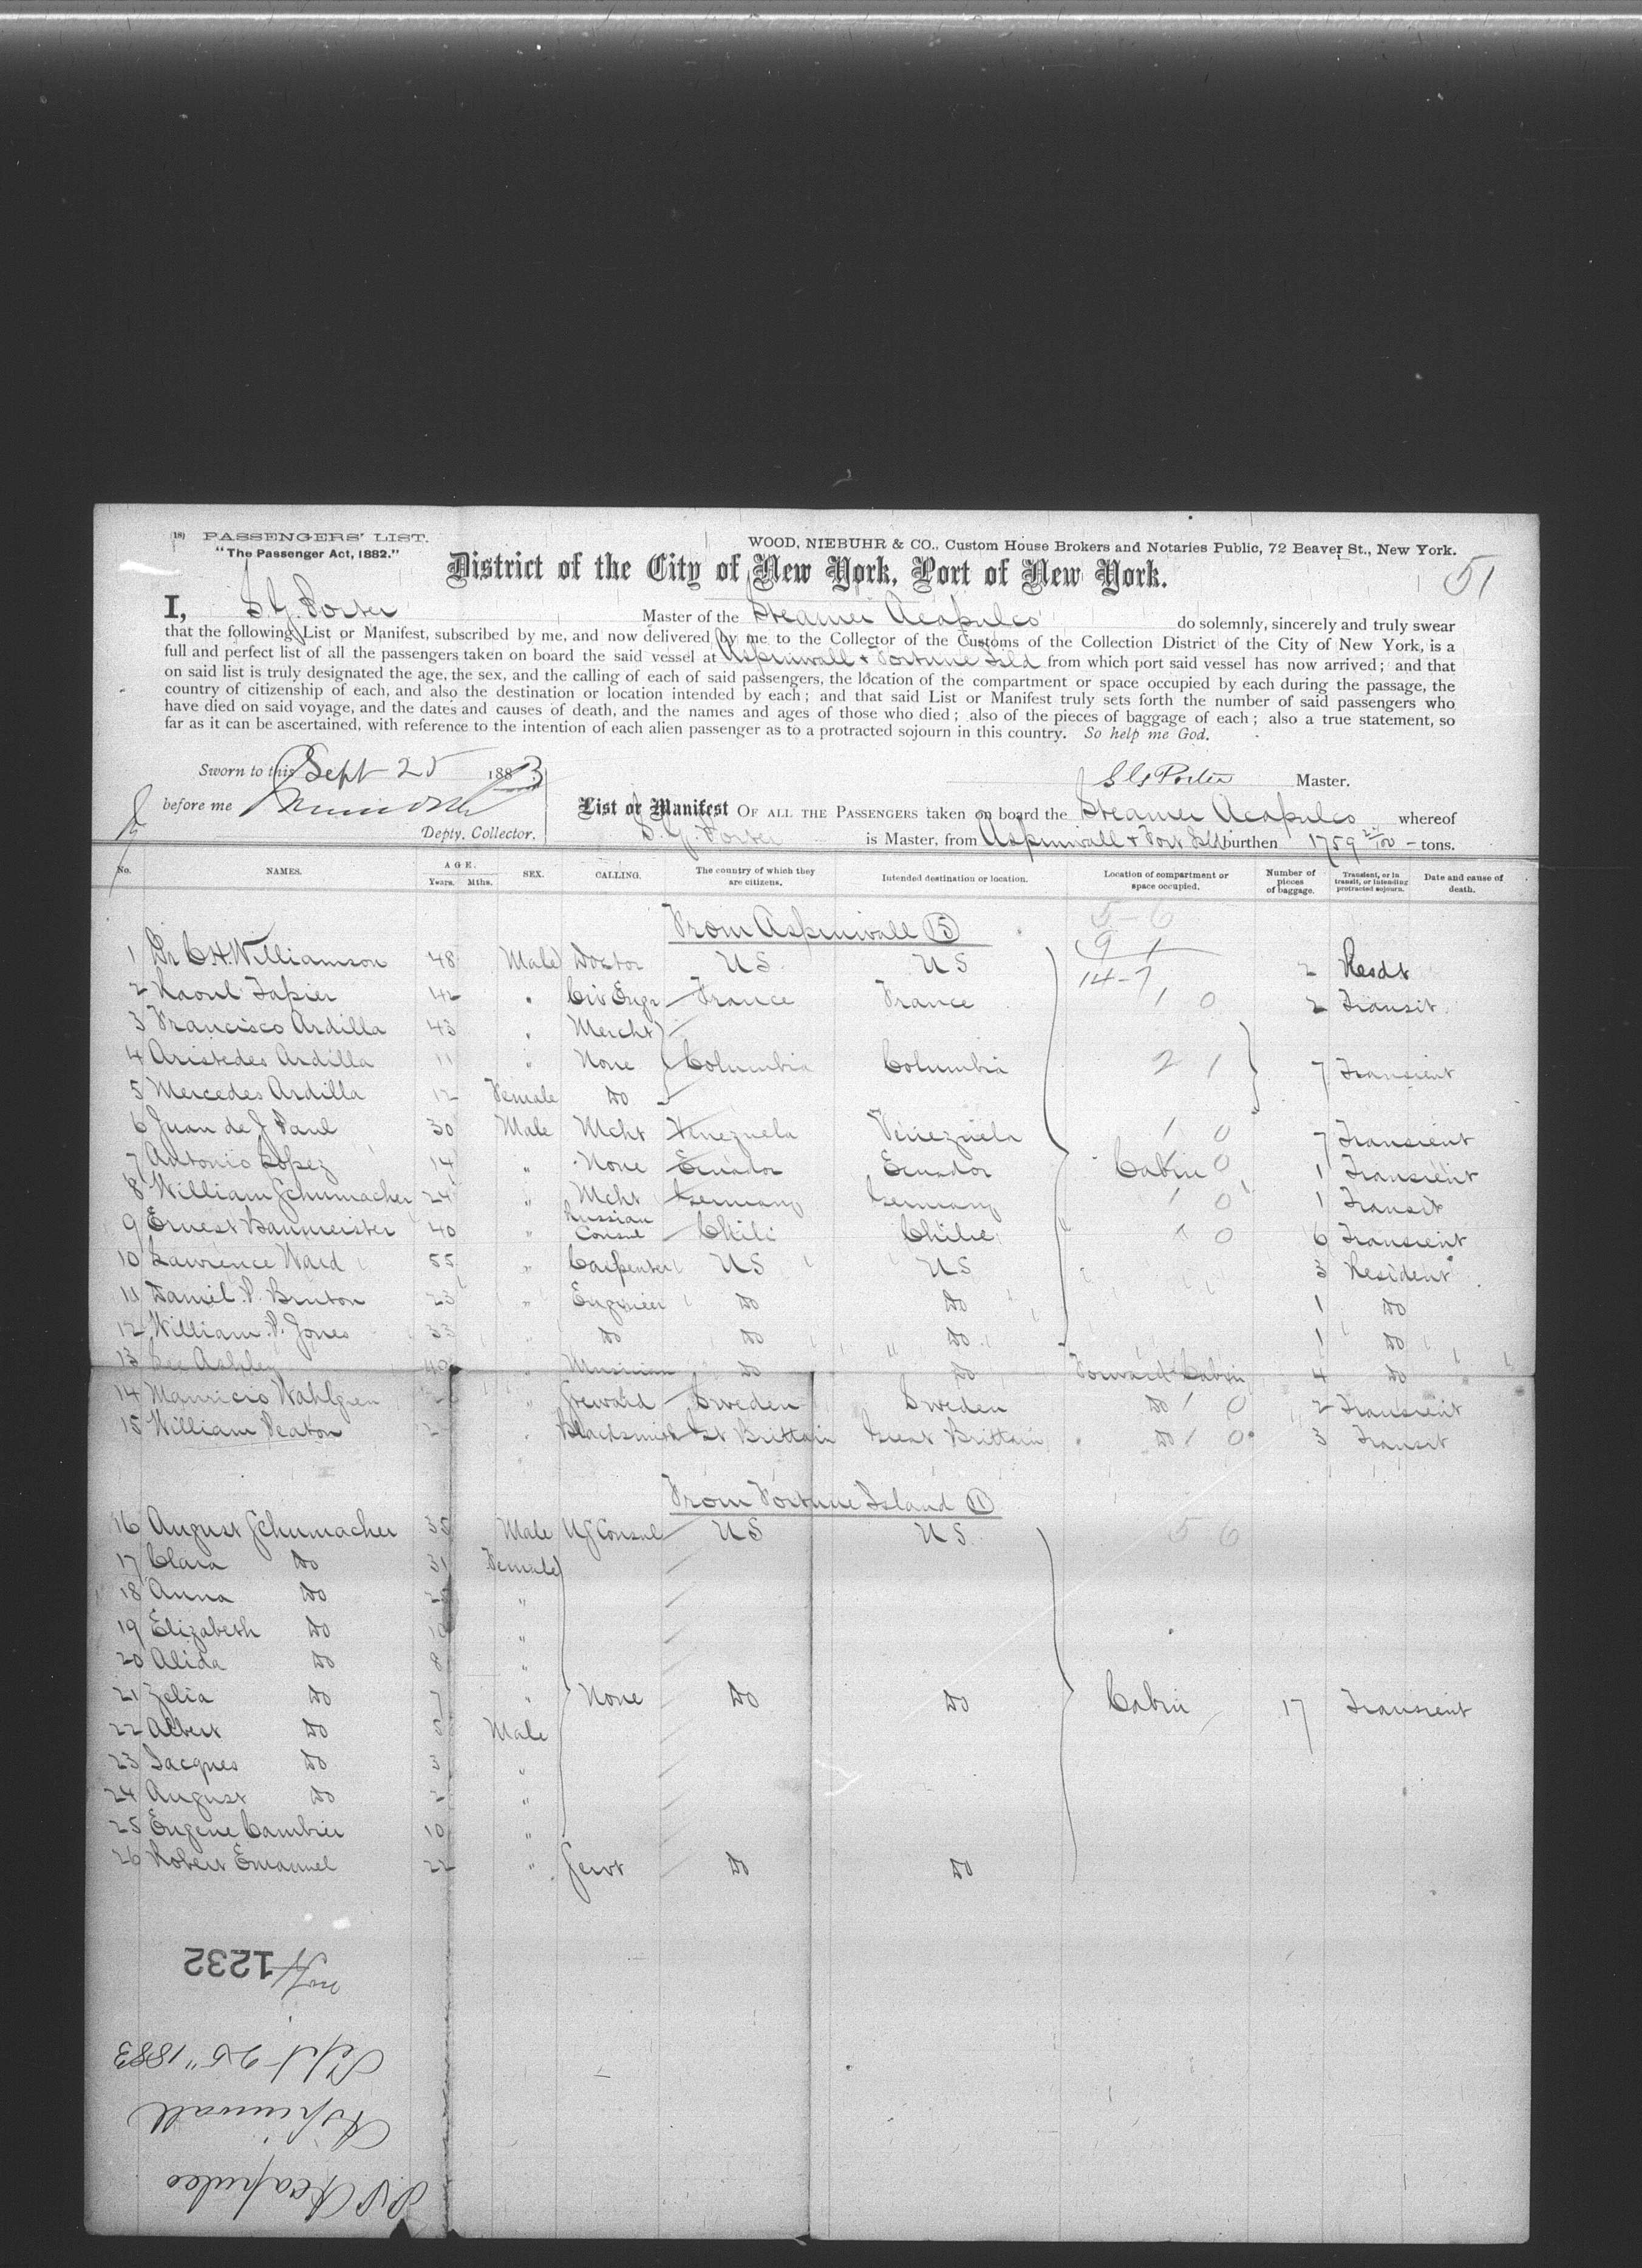 (18) PASSENGERS' LIST. WOOD, NIEBUHR & CO., Custom House Brokers and Notaries Public, 72 Beaver St., New York.
"The Passenger Act, 1882."
District of the City of New York, Port of New York. 51
I, S.G. Porter Master of the Steamer Acapulco do solemnly, sincerely and truly swear
that the following List or Manifest, subscribed by me, and now delivered by me to the Collector of the Customs of the Collection District of the City of New York, is a
full and perfect list of all the passengers taken on board the said vessel at Aspinwall & Fortune Isld from which port said vessel has now arrived; and that
on said list is truly designated the age, the sex, and the calling of each of said passengers, the location of the compartment or space occupied by each during the passage, the
country of citizenship of each, and also the destination or location intended by each; and that said List or Manifest truly sets forth the number of said passengers who
have died on said voyage, and the dates and causes of death, and the names and ages of those who died; also of the pieces of baggage of each; also a true statement, so
far as it can be ascertained, with reference to the intention of each alien passenger as to a protracted sojourn in this country. So help me God.
Sworn to this Sept 25 1883 S G Porter Master.
before me
Depty. Collector.
List or Manifest OF ALL THE PASSENGERS taken on board the Steamer Acapulco whereof
S. G. Porter is Master, from Aspinwall & Fort Isld burthen 1759 /100 - tons.
No. NAMES. AGE. Years. Mths. SEX. CALLING. The country of which they are citizens. Intended destination or location. Location of compartment or space occupied. Number of pieces of baggage. Transient, or in transit, or intending protracted sojourn. Date and cause of death.
From Aspinwall 15 5-6
9 1
14-7
1 Dr C.H. Williamson 48 Male Doctor US US 2 Resdt
2 Raoul Tapier 42 " Civ Engr France France 1 0 2 Transit
3 Francisco Ardilla 43 " Mercht
4 Aristedes Ardilla 11 " None Columbia Columbia 2 1 7 Transient
5 Mercedes Ardilla 12 Female Do
6 Juan de J Paul 30 Male Mcht Venezuela Venezuela 1 0 7 Transient
7 Antonio Lopez 14 " None Ecuador Ecuador Cabin 0 1 Transient
8 William Schumacher 24 " Mcht Germany Germany 1 0 1 Transit
9 Ernest Baumeister 40 " Russian Consul Chili Chile 1 0 6 Transient
10 Lawrence Ward 55 " Carpenter US US 3 Resident
11 Daniel P. Bruton 23 " Engineer Do Do 1 Do
12 William P. Jones 33 " Do Do Do 1 Do
13 Lee Ashley 40 " Musician Do Do Forward Cabin 4 Do
14 Mauricio Wahlgren " Steward Sweden Sweden Do 1 0 2 Transient
15 William Peaton " Blacksmith Gt Brittain Great Brittain Do 1 0 3 Transit
From Fortune Island 11
16 August Schumacher 35 Male US Consul US US 5 6
17 Clara Do 31 Female
18 Anna Do "
19 Elizabeth Do 10 "
20 Alida Do 8 "
21 Zelia Do 7 " None Do Do Cabin 17 Transient
22 Albert Do 5 Male
23 Jacques Do 3 "
24 August Do 2 "
25 Eugene Cambier 10 "
26 Robert Emanuel 22 " Servt Do Do
1232
Sept 25" 1883
Aspinwall
Acapulco